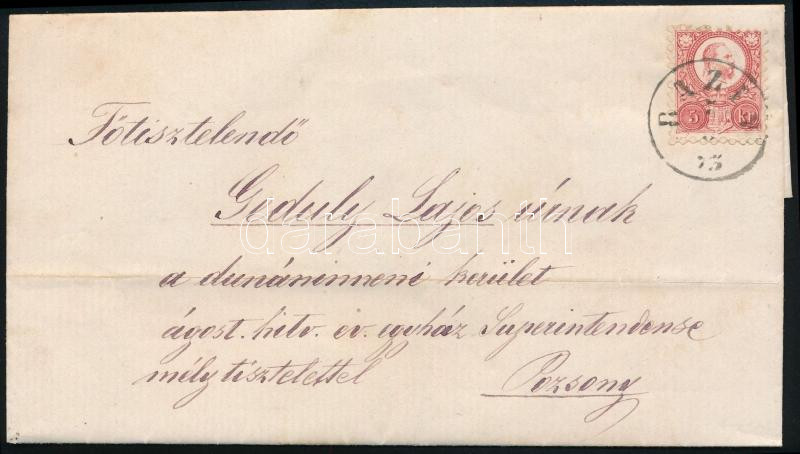 5 kr
BAZIN
73
Főtisztelendő
Geduly Lajos úrnak
a dunáninneni kerület
ágost. hitv. ev. egyház Superintendense
mély tisztelettel Pozsony
darabanth